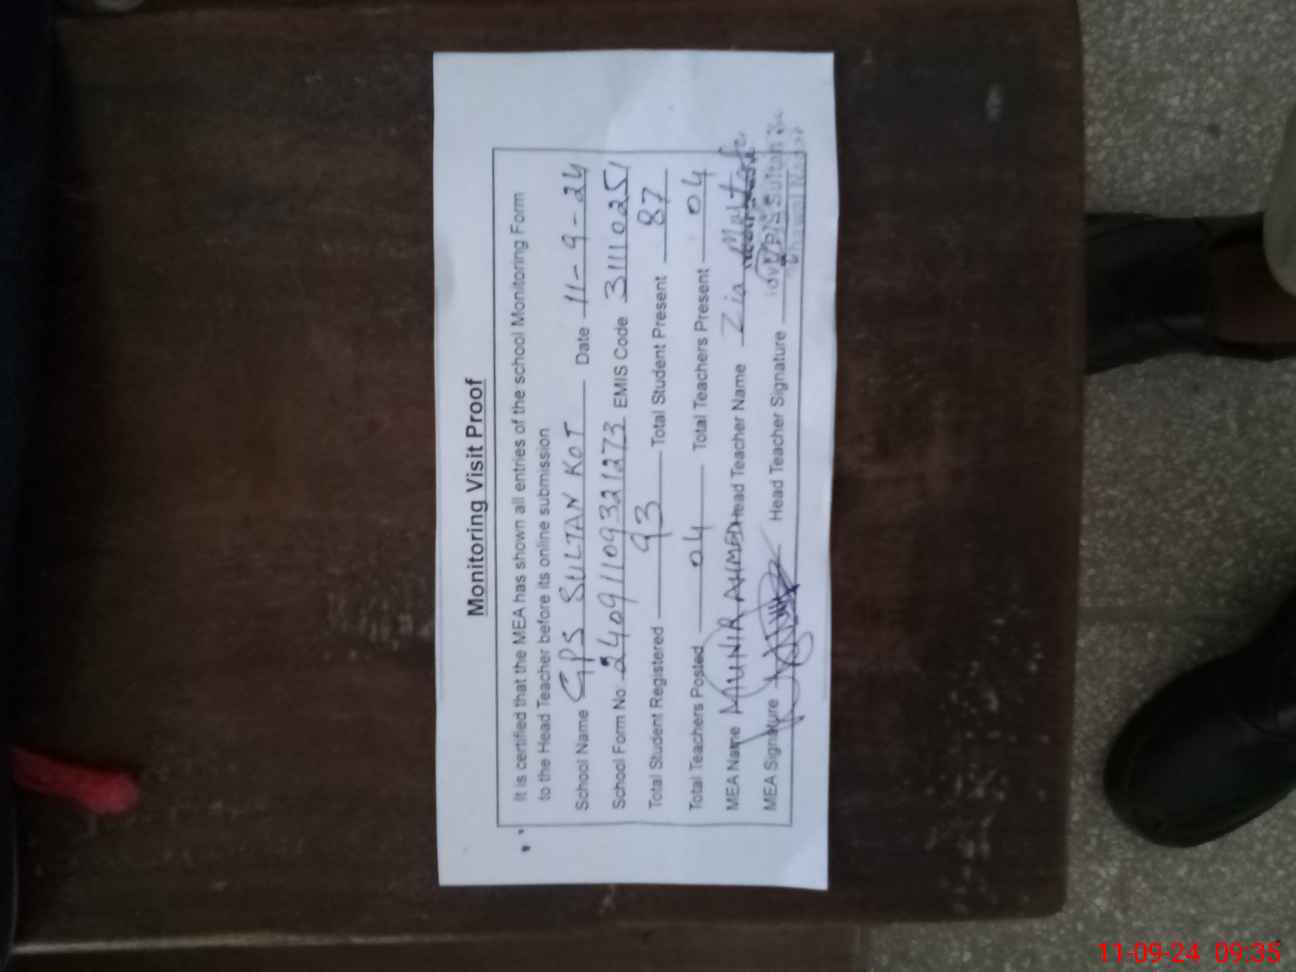 Monitoring Visit Proof
It is certified that the MEA has shown all entries of the school Monitoring Form
to the Head Teacher before its online submission
School Name GPS SULTAN KOT Date 11-9-24
School Form No 24091109321273 EMIS Code 31110251
Total Student Registered 93 Total Student Present 87
Total Teachers Posted 04 Total Teachers Present 04
MEA Name MUNIR AHMED Head Teacher Name Zia
MEA Signature Head Teacher Signature
11-09-24 09:35